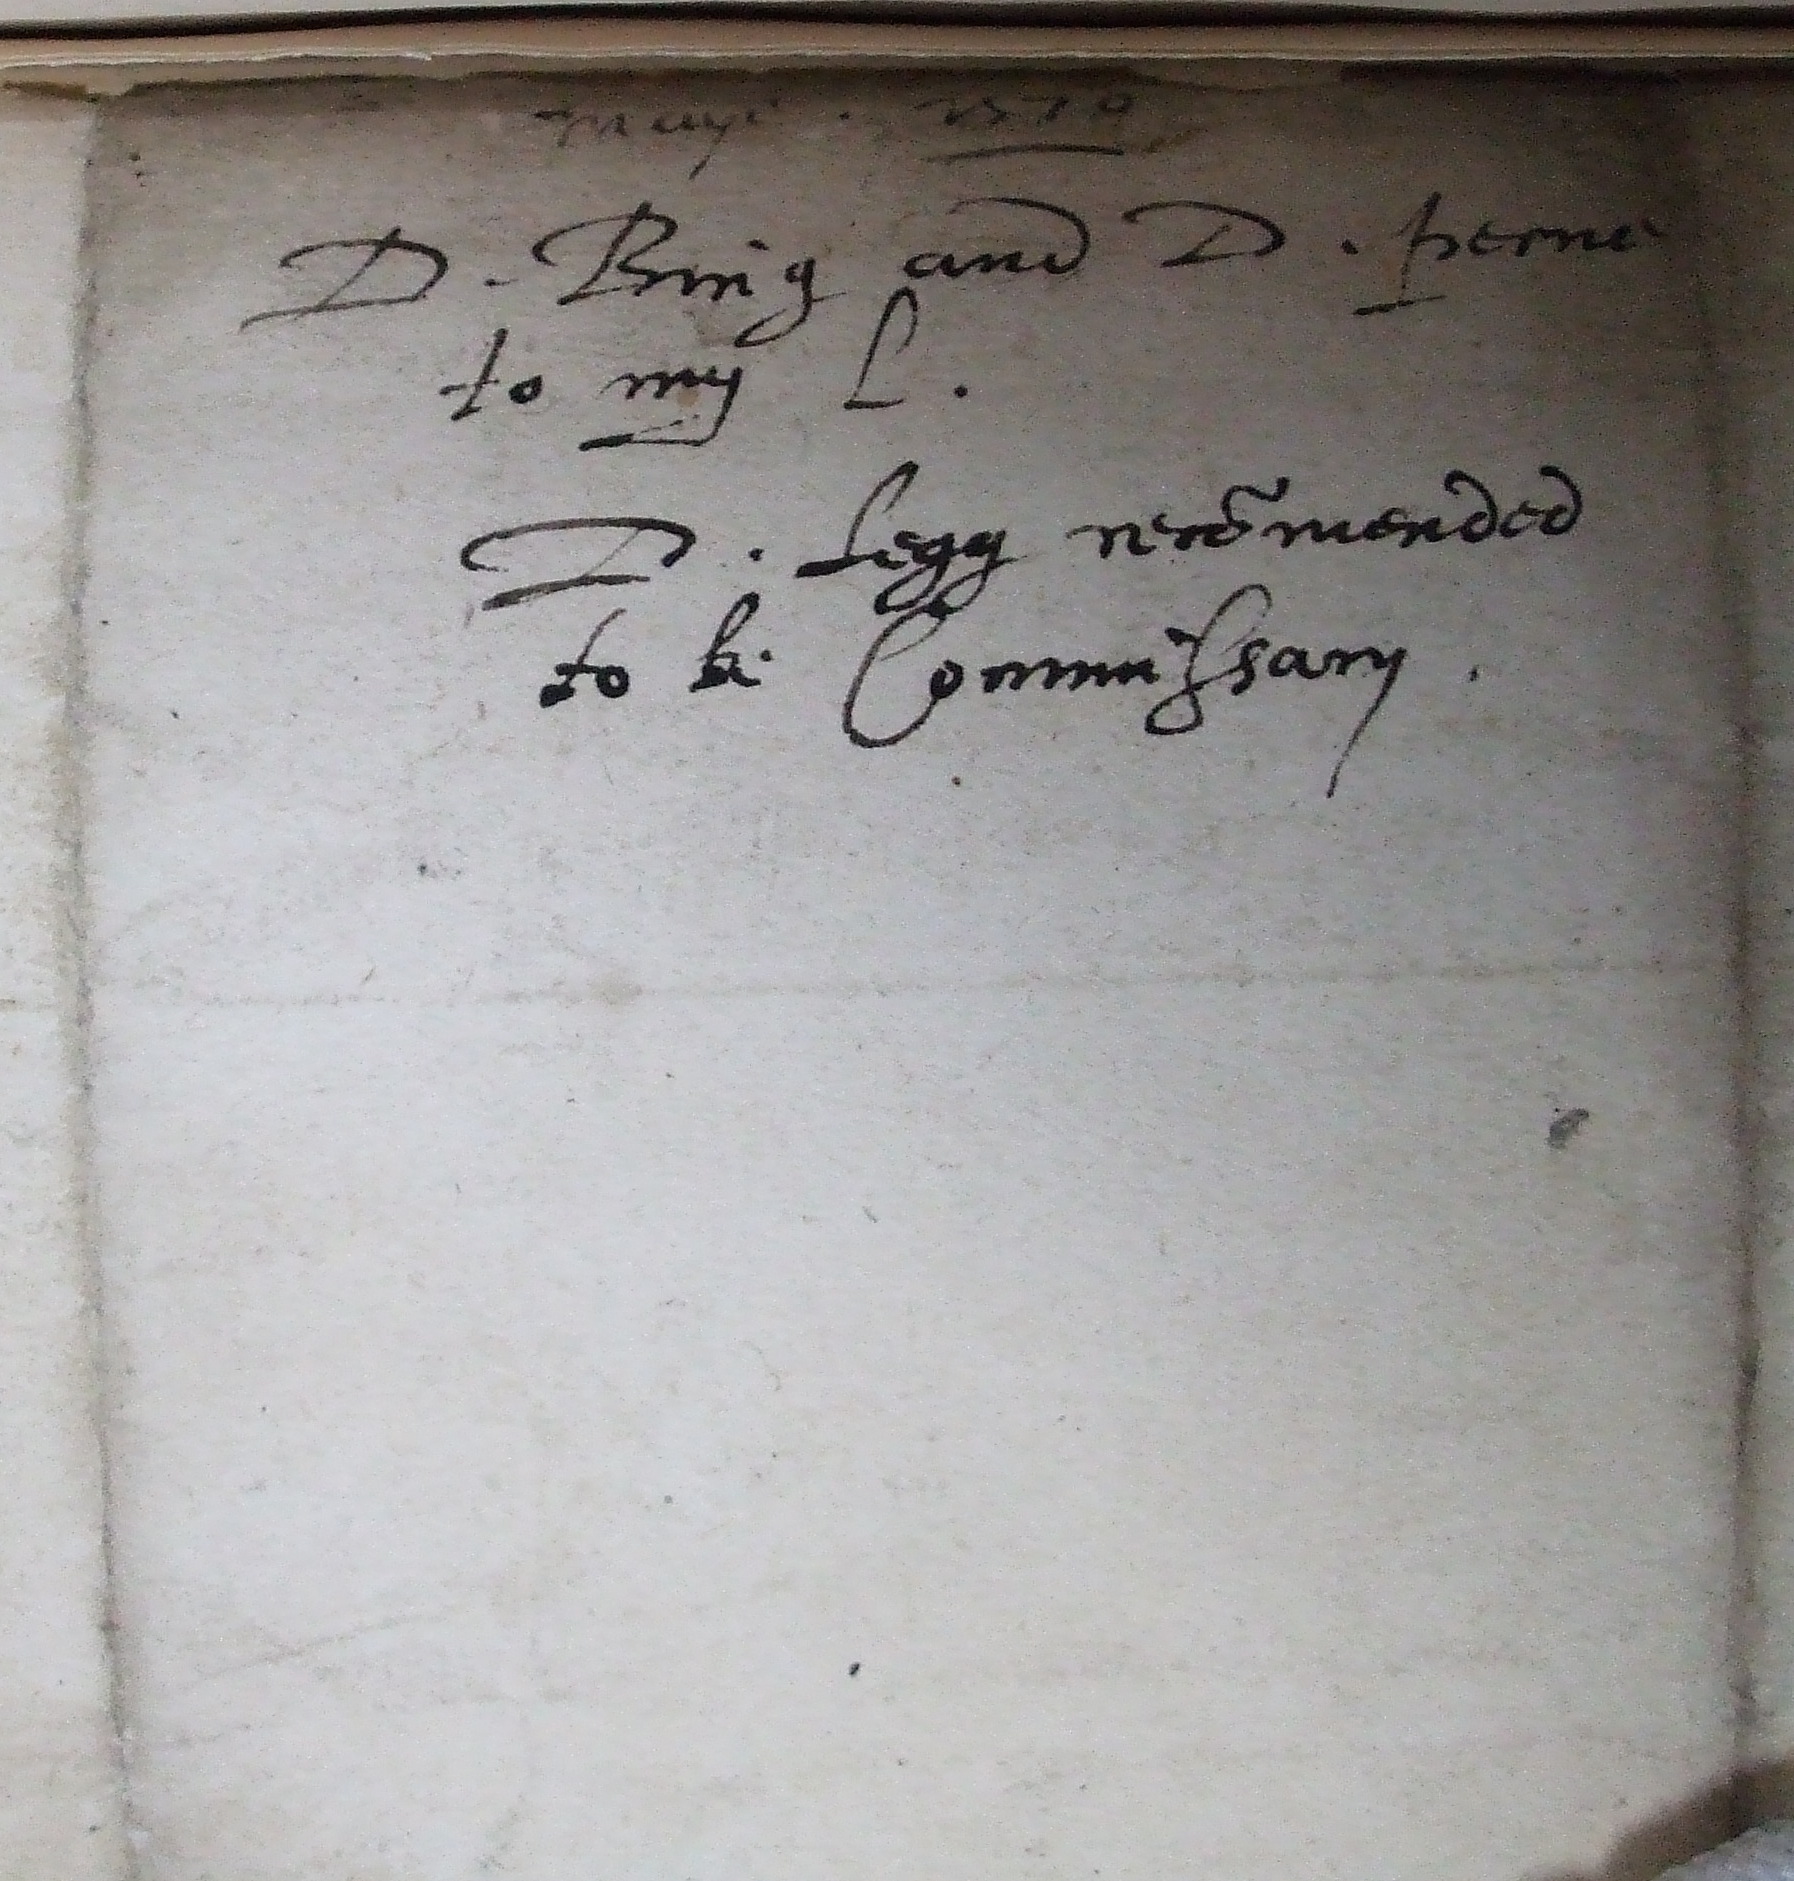 Maye . 1579
D. Bing and D. perne
to my L.
D. Legg recõmended
to be Commissary.